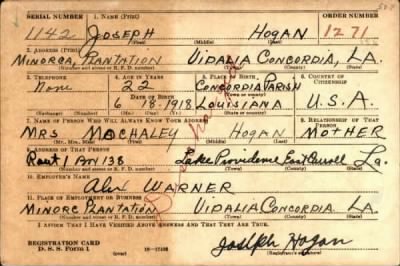 SERIAL NUMBER 1. NAME (Print) ORDER NUMBER
1142 JOSEPH HOGAN 1271
(First) (Middle) (Last)
2. ADDRESS (Print)
MINORCA, PLANTATION VIDALIA CONCORDIA, LA.
(Number and street or R. F. D. number) (Town) (County) (State)
3. TELEPHONE 4. AGE IN YEARS 5. PLACE OF BIRTH 6. COUNTRY OF CITIZENSHIP
None 22 CONCORDIA PARISH
DATE OF BIRTH
6 18 1918 LOUISIANA U.S.A.
(Exchange) (Number) (Mo.) (Day) (Yr.) (State or country)
7. NAME OF PERSON WHO WILL ALWAYS KNOW YOUR ADDRESS 8. RELATIONSHIP OF THAT PERSON
MRS MACHALEY HOGAN MOTHER
(Mr., Mrs., Miss) (First) (Middle) (Last)
9. ADDRESS OF THAT PERSON
Rout 1 138 Lake Providence East Carroll La.
(Number and street or R. F. D. number) (Town) (County) (State)
10. EMPLOYER'S NAME
Alex WARNER
11. PLACE OF EMPLOYMENT OR BUSINESS
MINORC PLANTATION VIDALIA CONCORDIA LA.
(Number and street or R. F. D. number) (Town) (County) (State)
I AFFIRM THAT I HAVE VERIFIED ABOVE ANSWERS AND THAT THEY ARE TRUE.
REGISTRATION CARD
D. S. S. Form 1 (over) Joseph Hogan
(Registrant's signature)